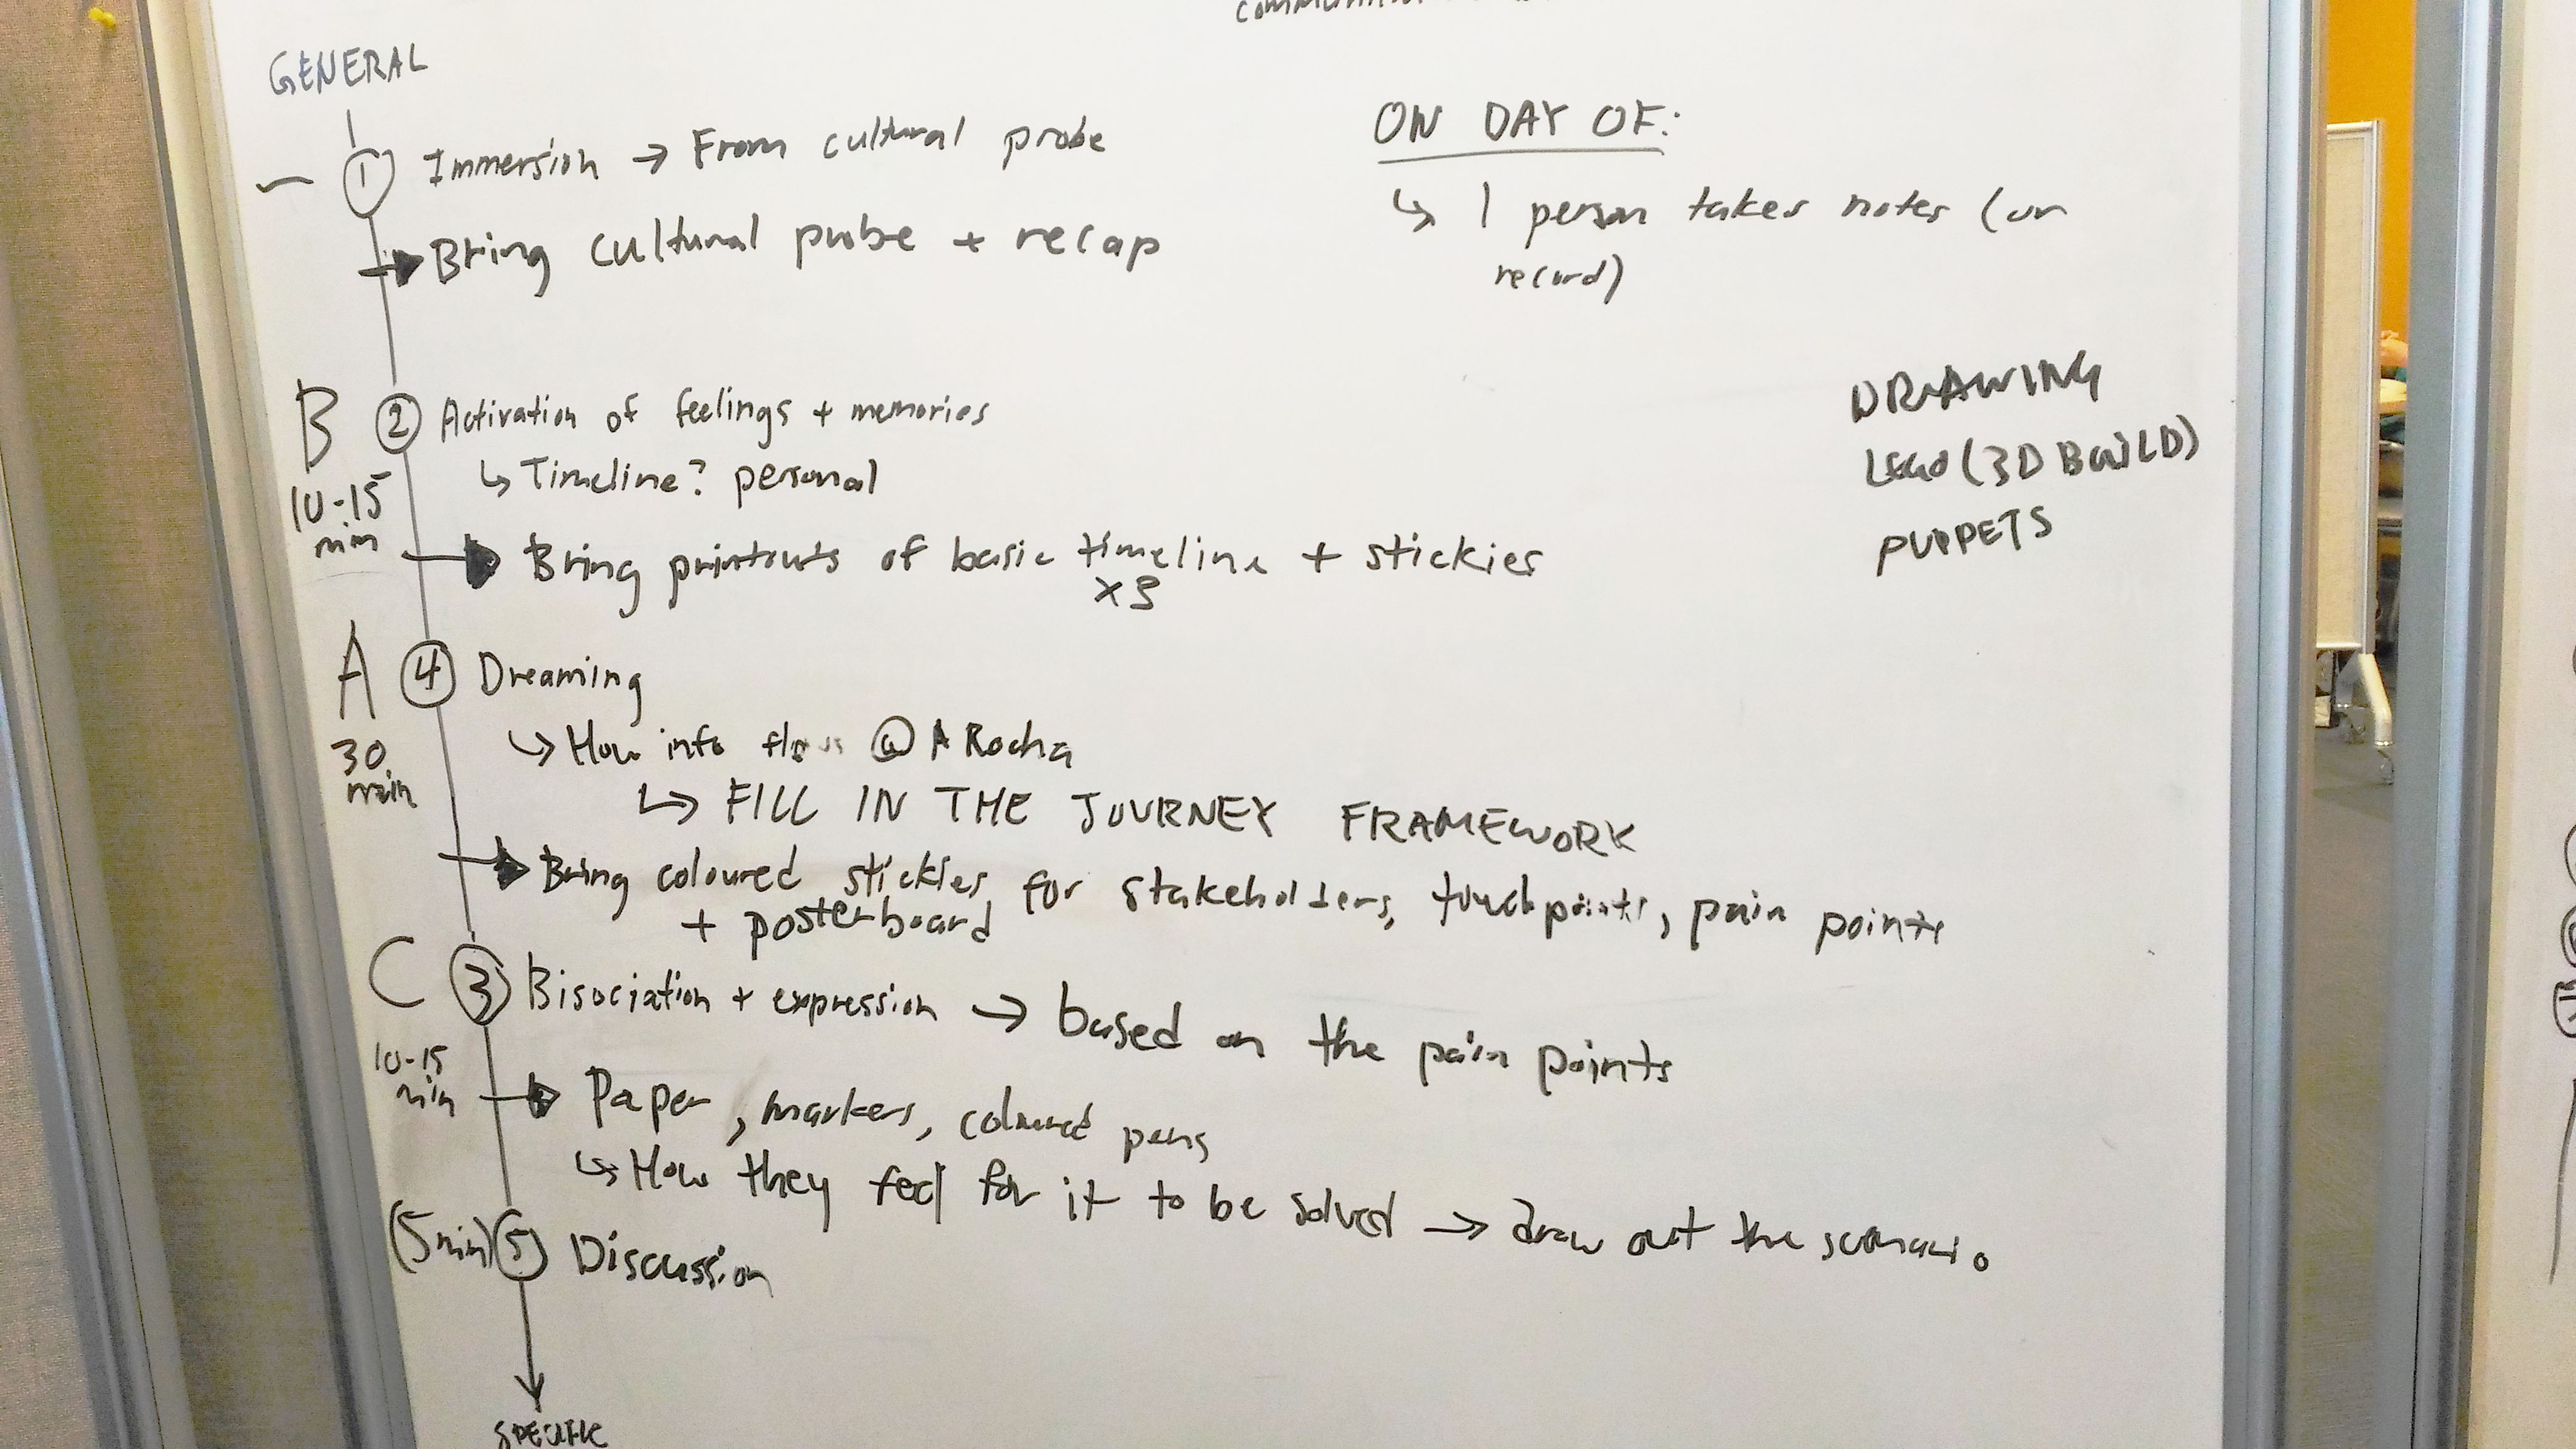 GENERAL
① Immersion → From cultural probe
→ Bring cultural probe + recap
B ② Activation of feelings + memories
10-15 min
↳ Timeline? personal
→ Bring printouts of basic timeline + stickies
A ④ Dreaming
30 min
↳ How info flows @ A Rocha
↳ FILL IN THE JOURNEY FRAMEWORK
→ Bring coloured stickies for stakeholders, touchpoints, pain points
+ posterboard
C ③ Bisociation + expression → based on the pain points
10-15 min
→ Paper, markers, coloured pens
↳ How they feel for it to be solved → draw out the scenario
(5 min) ⑤ Discussion
SPECIFIC
ON DAY OF:
↳ 1 person takes notes (or
record)
DRAWING
LEGO (3D BUILD)
PUPPETS